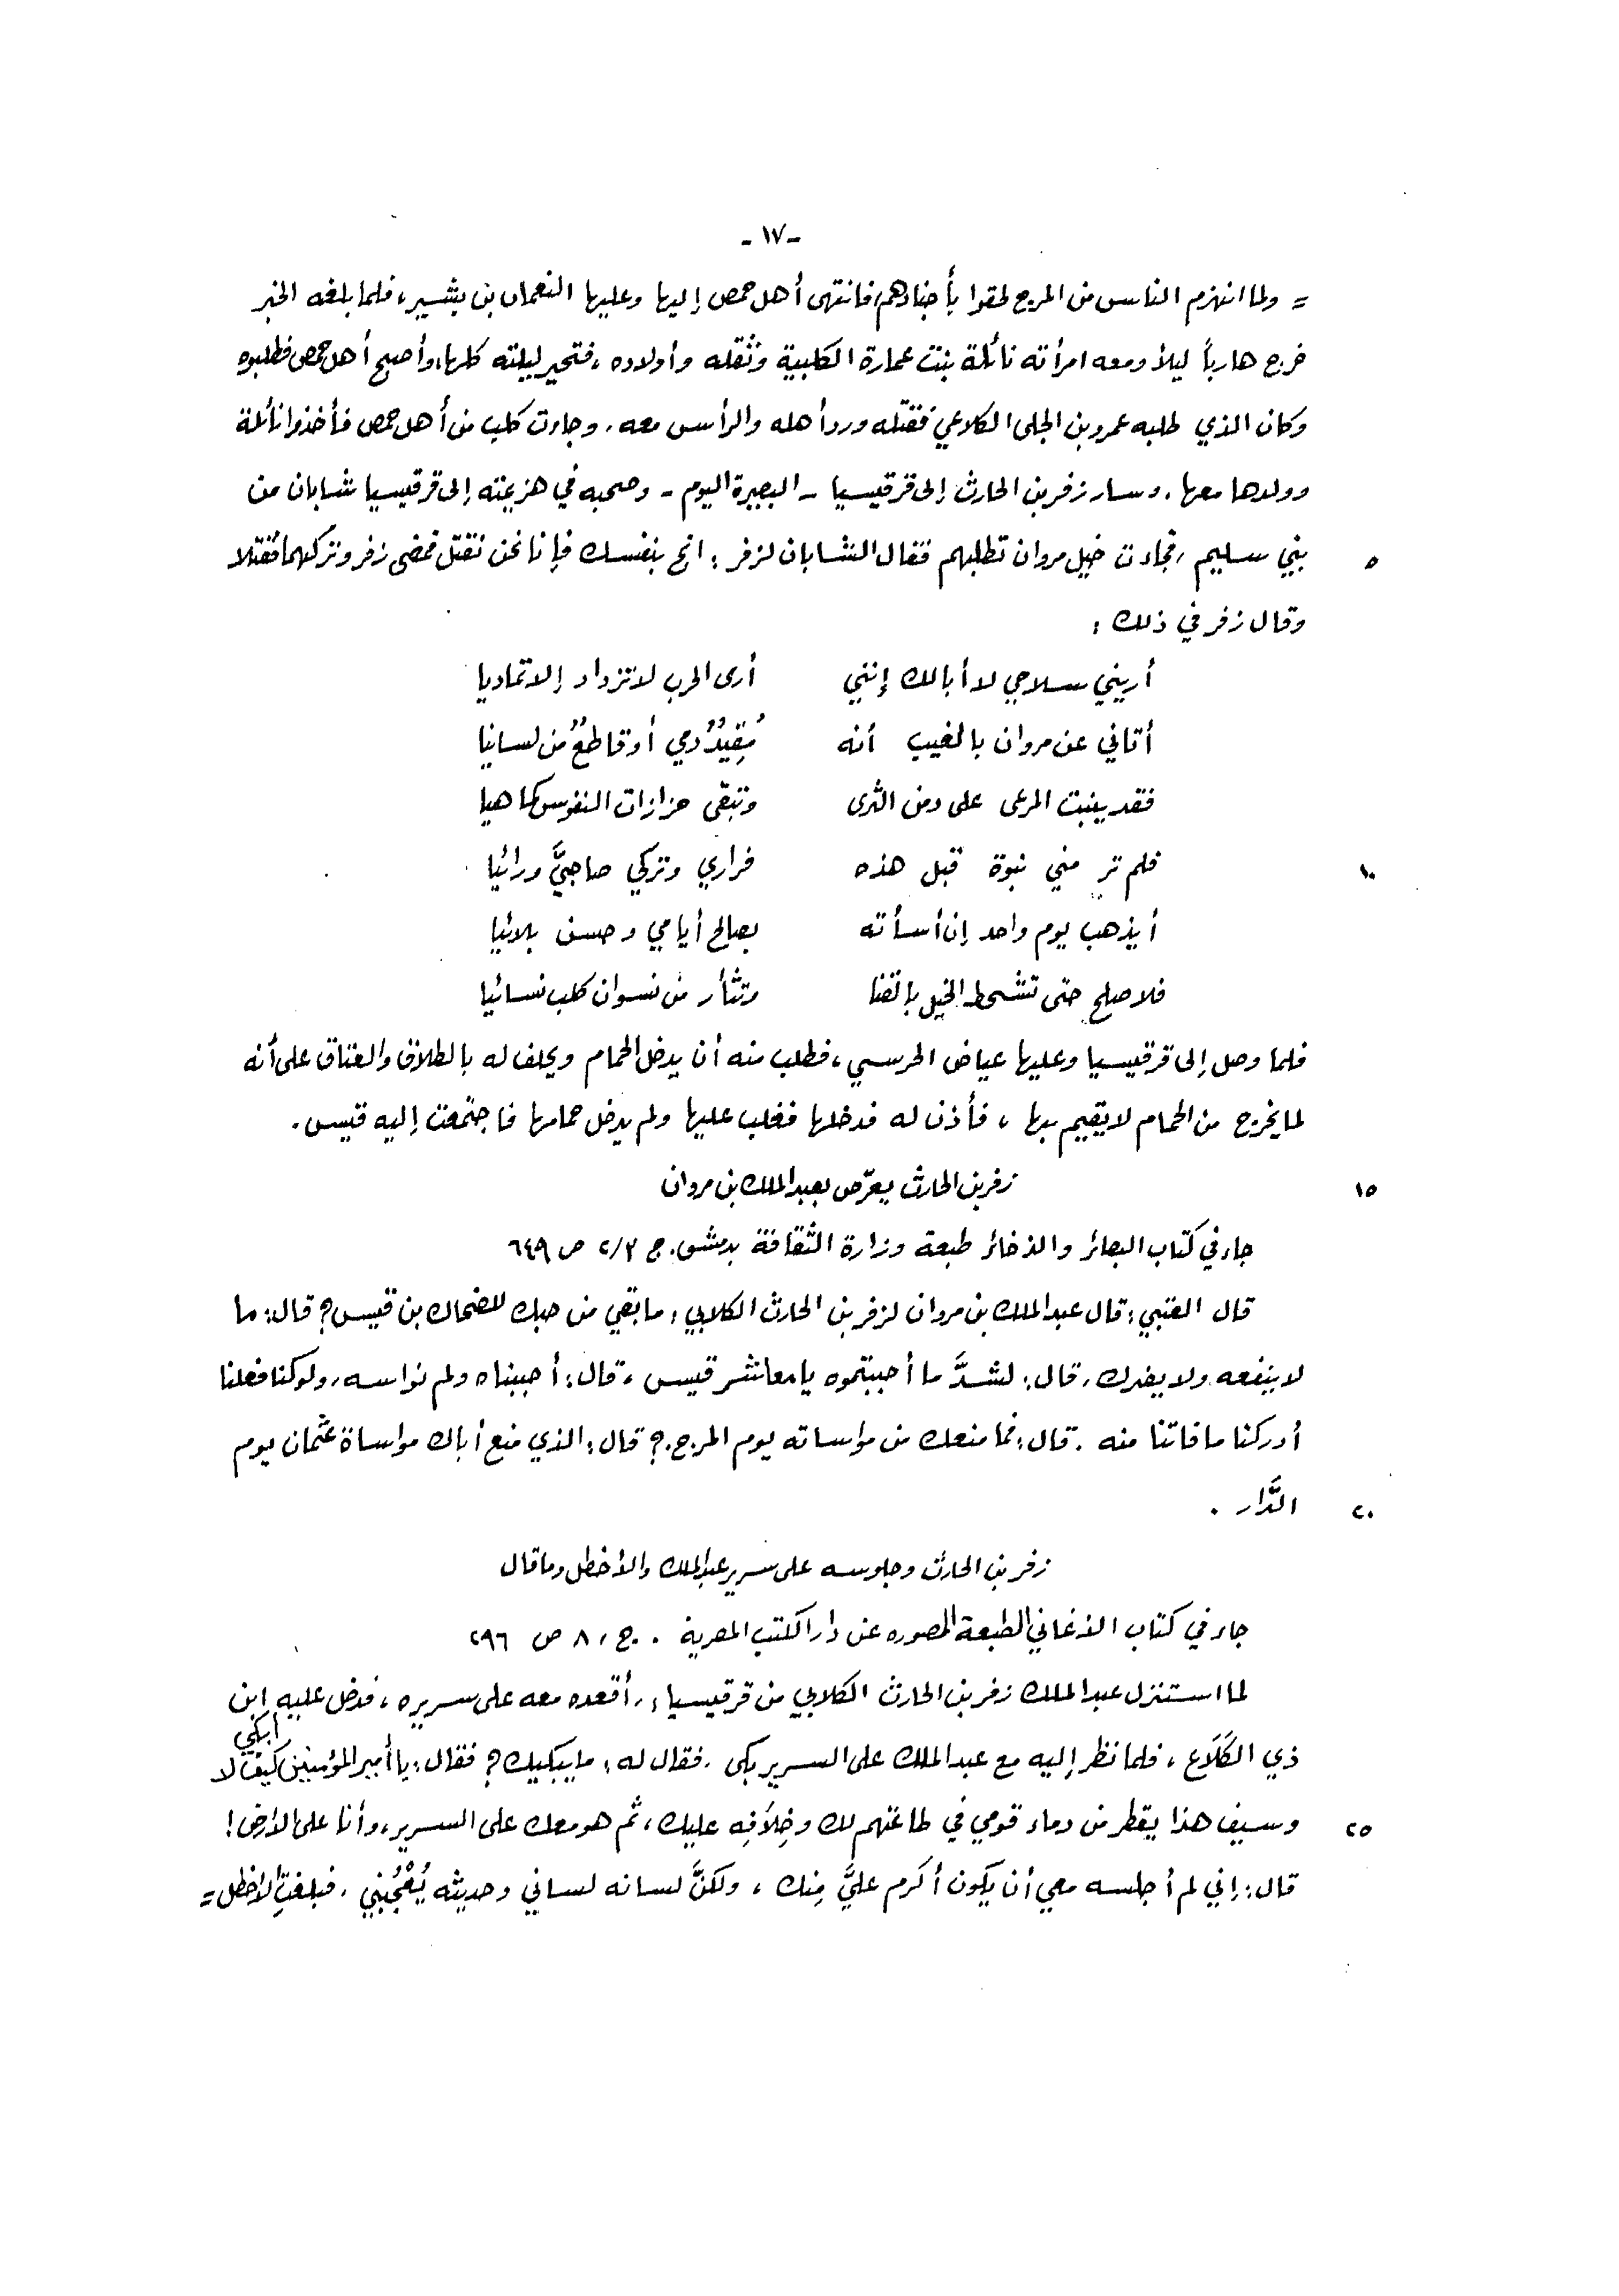 -١٧-
= ولما انهزم الناس من المرج لحقوا بأجنادهم، فانتهى أهل حمص إليها وعليها النعمان بن بشير، فلما بلغه الخبر
خرج هارباً ليلاً ومعه امرأته نائلة بنت عمارة الكلبية وثَقَله وأولاده، فتحير ليلته كلها، وأصبح أهل حمص فطلبوه
وكان الذي طلبه عمرو بن الجلى الكلاعي فقتله ورد أهله والرأس معه، وجاءت كلب من أهل حمص فأخذوا نائلة
وولدها معها. وسار زفر بن الحارث إلى قرقيسيا - البصيرة اليوم - وصحبه في هزيمته إلى قرقيسيا شابان من
٥ بني سليم، فجاءت خيل مروان تطلبهم فقال الشابان لزفر: انج بنفسك فإنا نحن نقتل فمضى زفر وتركهما فقتلا
وقال زفر في ذلك:
أريني سلاحي لا أبا لك إنني أرى الحرب لا تزداد إلا تماديا
أتاني عن مروان بالغيب أنه مُقِيدٌ دمي أو قاطعٌ من لسانيا
فقد ينبت المرعى على دمن الثرى وتبقى حزازات النفوس كما هيا
١٠ فلم تر مني نبوة قبل هذه فراري وتركي صاحبيَّ ورائيا
أيذهب يوم واحد إن أسأته بصالح أيامي وحسن بلائيا
فلا صلح حتى تشحط الخيل بالقنا وتثأر من نسوان كلب نسائيا
فلما وصل إلى قرقيسيا وعليها عياض الحرسي، فطلب منه أن يدخل الحمام ويحلف له بالطلاق والعتاق على أنه
لما يخرج من الحمام لا يقيم بها، فأذن له فدخلها فغلب عليها ولم يدخل حمامها فاجتمعت إليه قيس.
١٥ زفر بن الحارث يعرّض بعبد الملك بن مروان
جاء في كتاب البصائر والذخائر طبعة وزارة الثقافة بدمشق. ج ٢/٣ ص ٦٤٩
قال العتبي: قال عبد الملك بن مروان لزفر بن الحارث الكلابي: ما بقي من حبك للضحاك بن قيس؟ قال: ما
لا ينفعه ولا يضرك، قال: لشدَّ ما أحببتموه يا معاشر قيس، قال: أحببناه ولم نواسه، ولو كنا فعلنا
أدركنا ما فاتنا منه. قال: فما منعك من مواساته يوم المرج.؟ قال: الذي منع أباك مواساة عثمان يوم
٢٠ الدَّار.
زفر بن الحارث وجلوسه على سرير عبد الملك والأخطل وما قال
جاء في كتاب الأغاني الطبعة المصوره عن دار الكتب المصرية.. ج، ٨ ص ٢٩٦
لما استنزل عبد الملك زفر بن الحارث الكلابي من قرقيسياء، أقعده معه على سريره، فدخل عليه ابن
ذي الكَلَاع، فلما نظر إليه مع عبد الملك على السرير بكى. فقال له: ما يبكيك؟ فقال: يا أمير المؤمنين كيف لا أبكي
٢٥ وسيف هذا يقطر من دماء قومي في طاعتهم لك وخِلَافِه عليك، ثم هو معك على السرير، وأنا على الأرض!
قال: إني لم أجلسه معي أن يكون أكرم عليَّ مِنك، ولكنَّ لسانه لساني وحديثه يُعْجُبني. فبلغتِ الأخطل =